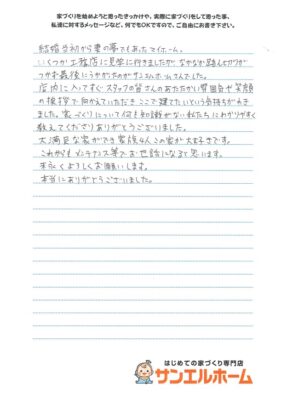 家づくりを始めようと思ったきっかけや、実際に家づくりをして思った事、
私達に対するメッセージなど、何でもOKですので、ご自由にお書き下さい。
結婚当初から妻の夢でもあったマイホーム。
いくつか工務店に見学に行きましたが、なかなか踏んぎりが
つかず最後にうかがったのがサンエルホームさんでした。
店内に入ってすぐスタッフの皆さんのあたたかい雰囲気や笑顔
の挨拶で向かえていただき ここで建てたいという気持ちがわき
ました。家づくりについて何も知識がない私たちにわかりやすく
教えてくださりありがとうございました。
大満足な家ができ家族4人この家が大好きです。
これからもメンテナンス等でお世話になると思います。
末永くよろしくお願いします。
本当にありがとうございました。
はじめての家づくり専門店
サンエルホーム